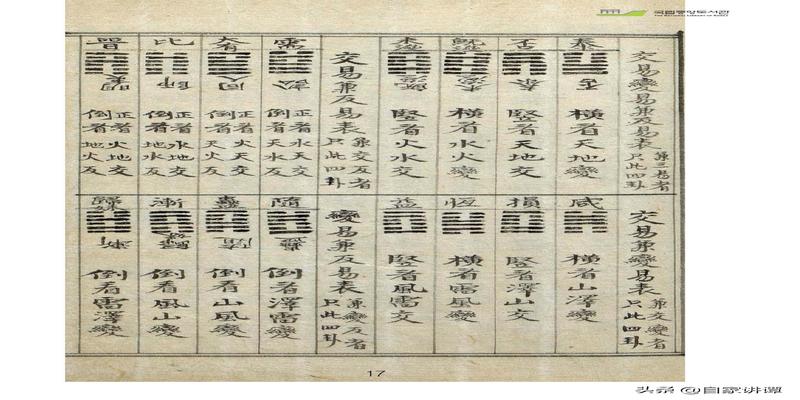 交易變易兼反易表 兼三易者只此四卦
泰 否 橫看天地變
否 泰 竪看天地交
旣濟 未濟 橫看水火變
未濟 旣濟 竪看火水交
交易兼反易表 兼交反者只此四卦
需 訟 正看天水交 倒看天水反
大有 同人 正看火天交 倒看天火反
比 師 正看水地交 倒看地水反
晉 明夷 正看火地交 倒看地火反
交易兼變易表 兼交變者只此四卦
咸 橫看山澤變
損 竪看澤山交
恆 橫看雷風變
益 竪看風雷交
變易兼反易表 兼變反者只此四卦
隨 蠱 倒看澤雷變
蠱 隨 倒看山風變
漸 歸妹 倒看風山變
歸妹 漸 倒看雷澤變
17
头条 @自家讲谭